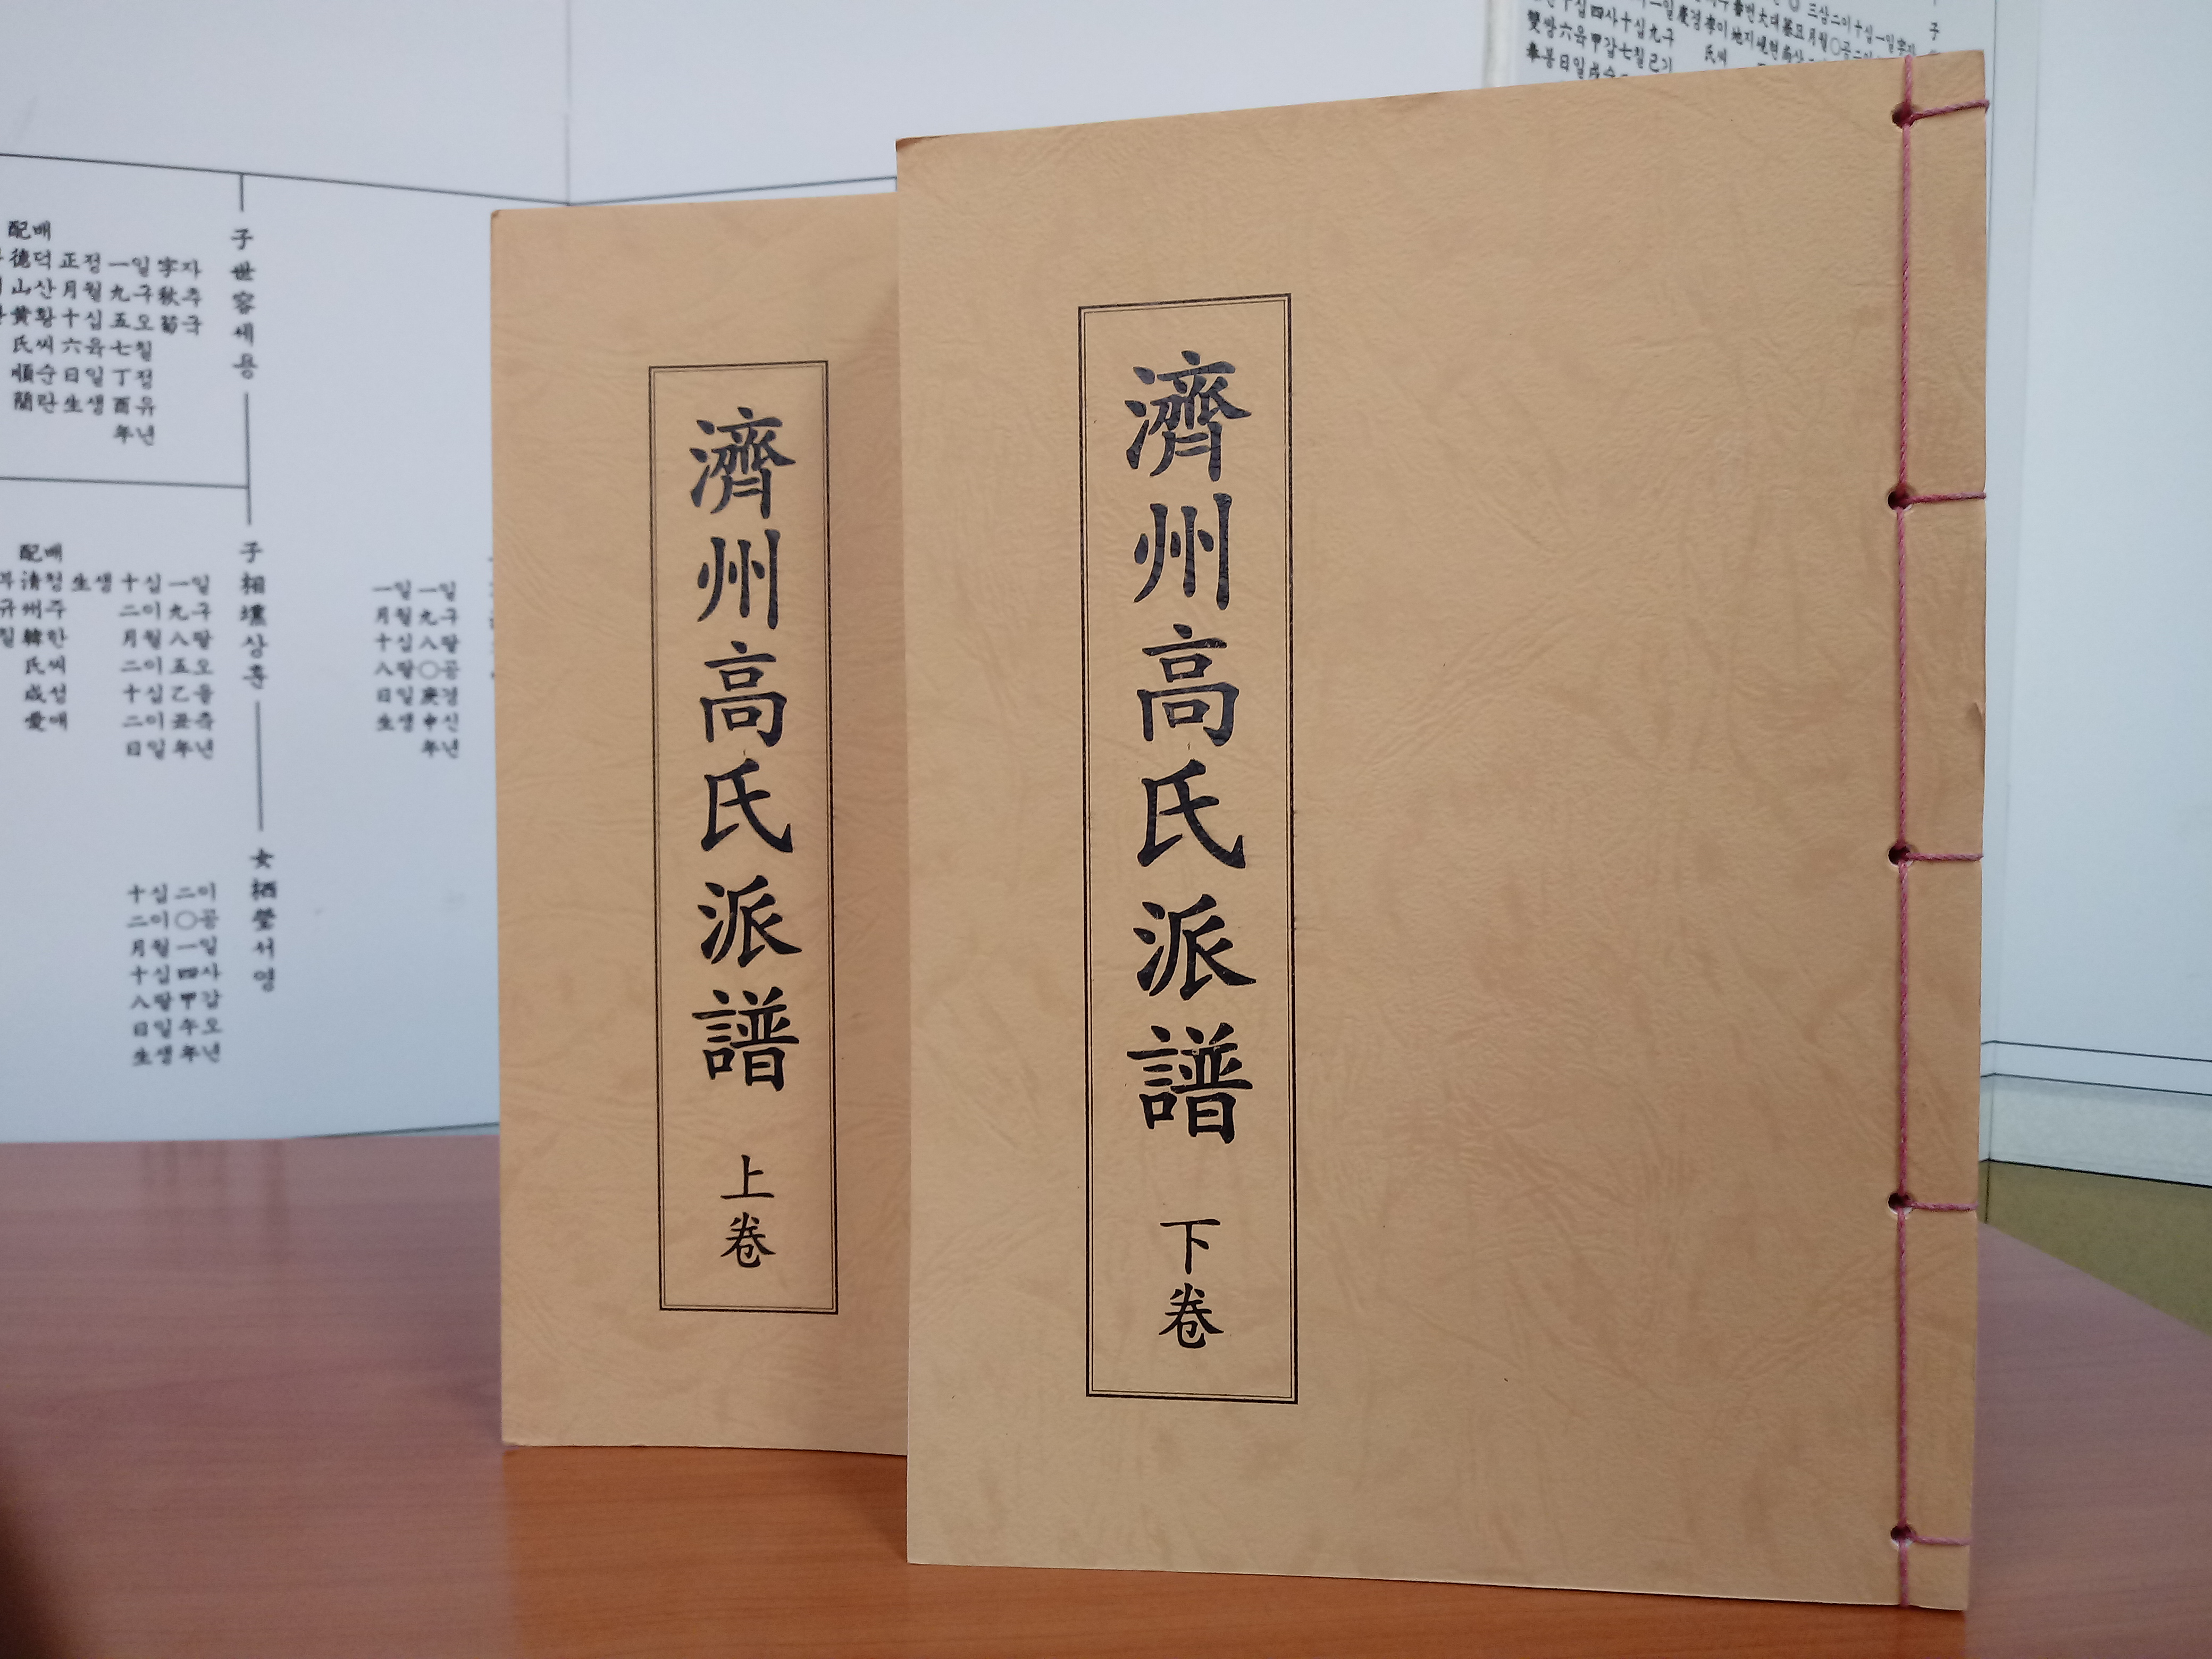 濟州高氏派譜 上卷
濟州高氏派譜 下卷
子世容세용
字자秋추菊국
一일九구五오七칠丁정酉유年년
正정月월十십六육日일生생
配배
德덕山산黃황氏씨順순蘭란
子相壎상훈
一일九구八팔五오乙을丑축年년
十십二이月월二이十십二이日일
生생
配배
清청州주韓한氏씨成성愛애
女栖瑩서영
二이〇공一일四사甲갑午오年년
十십二이月월十십八팔日일生생
一일九구八팔〇공庚경申신年년
一일月월十십八팔日일生생